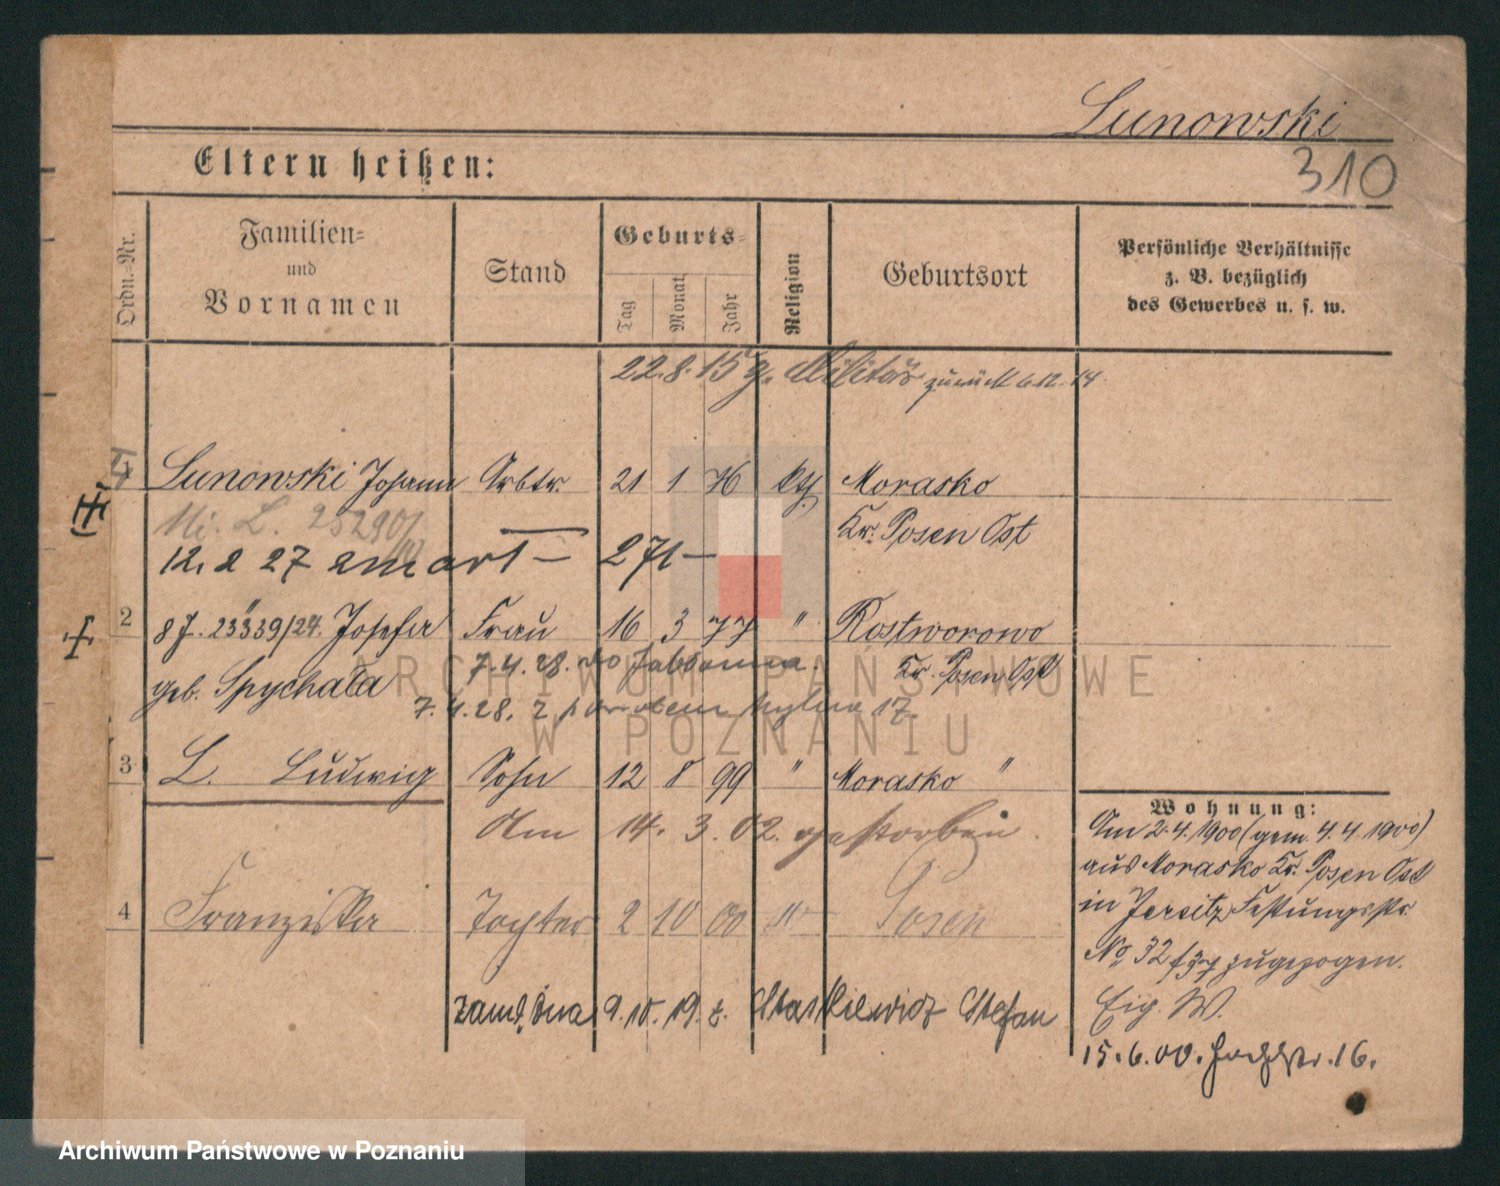 Lunowski
310
Eltern heißen:
Ordn.-Nr.
Familien-
und
Vornamen
Stand
Geburts-
Tag
Monat
Jahr
Religion
Geburtsort
Persönliche Verhältnisse
z. B. bezüglich
des Gewerbes u. s. w.
22.8.15 z. Militär zurück 6.12.14
1 Lunowski Johann Arbtr. 21 1 76 kth. Morasko
Kr. Posen Ost
12. 2 27 zmarł – 271 –
2 23339/24. Josefa Frau 16 3 77 " Rostworowo
Kr. Posen Ost
geb. Spychała
7.4.28. do
7.4.28. z 17
3 L. Ludwig Sohn 12 8 99 " Morasko "
Am 14. 3. 02. gestorben.
4 Franziska Tochter 2 10 00 " Posen
zamężna 9.10.19. z. Staśkiewicz Stefan
Wohnung:
Am 2.4.1900 (gem. 4.4.1900)
aus Morasko Kr. Posen Ost
in Jersitz Festungsstr.
No. 32 zugezogen.
Eig. W.
15.6.00. 16.
ARCHIWUM PAŃSTWOWE
W POZNANIU
Archiwum Państwowe w Poznaniu